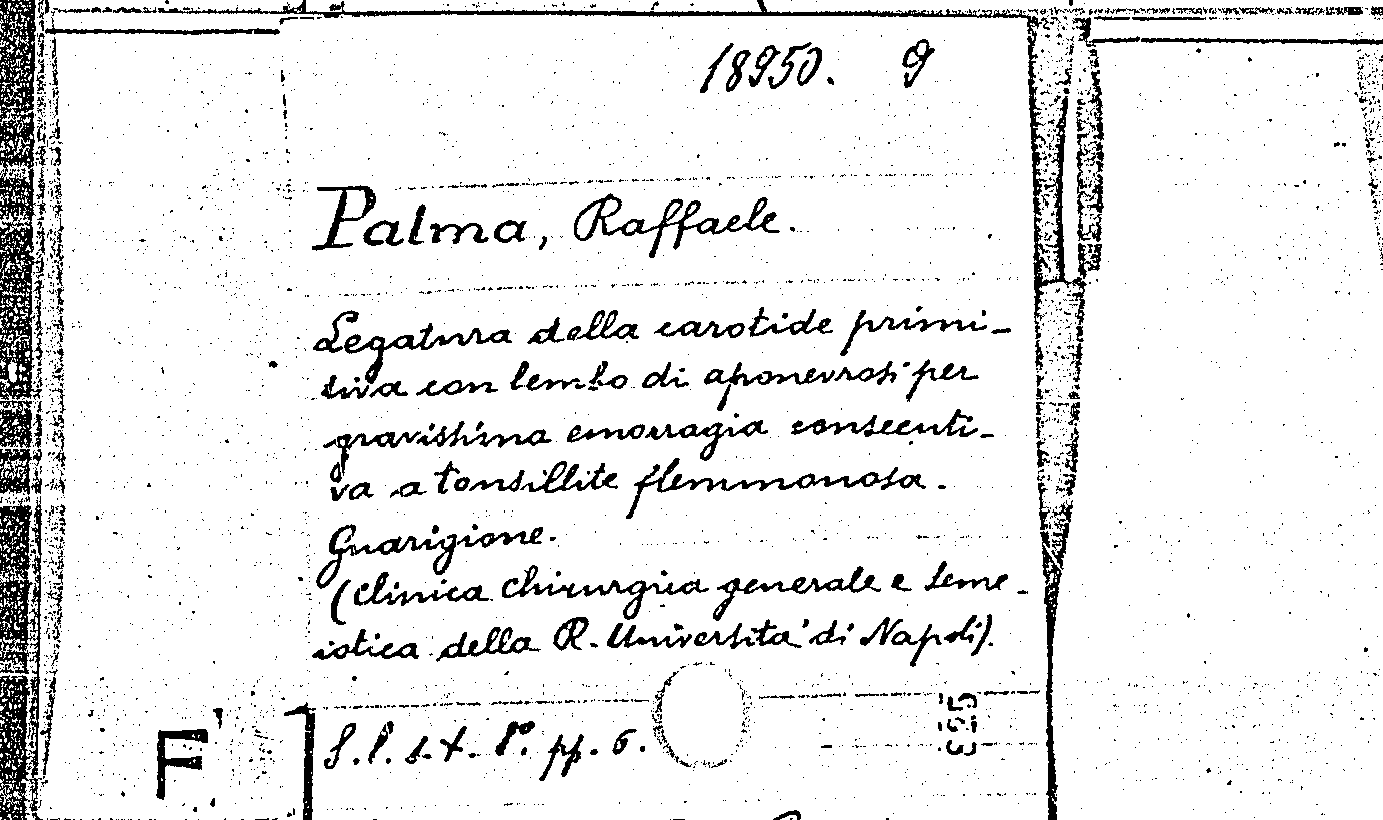 18950. 9
Palma, Raffaele.
Legatura della carotide primi-
tiva con lembo di aponevrosi per
gravissima emorragia consecuti-
va a tonsillite flemmonosa.
Guarigione.
(Clinica Chirurgica generale e seme-
iotica della R. Università di Napoli).
S. l. s. t. 8° pp. 6.
F